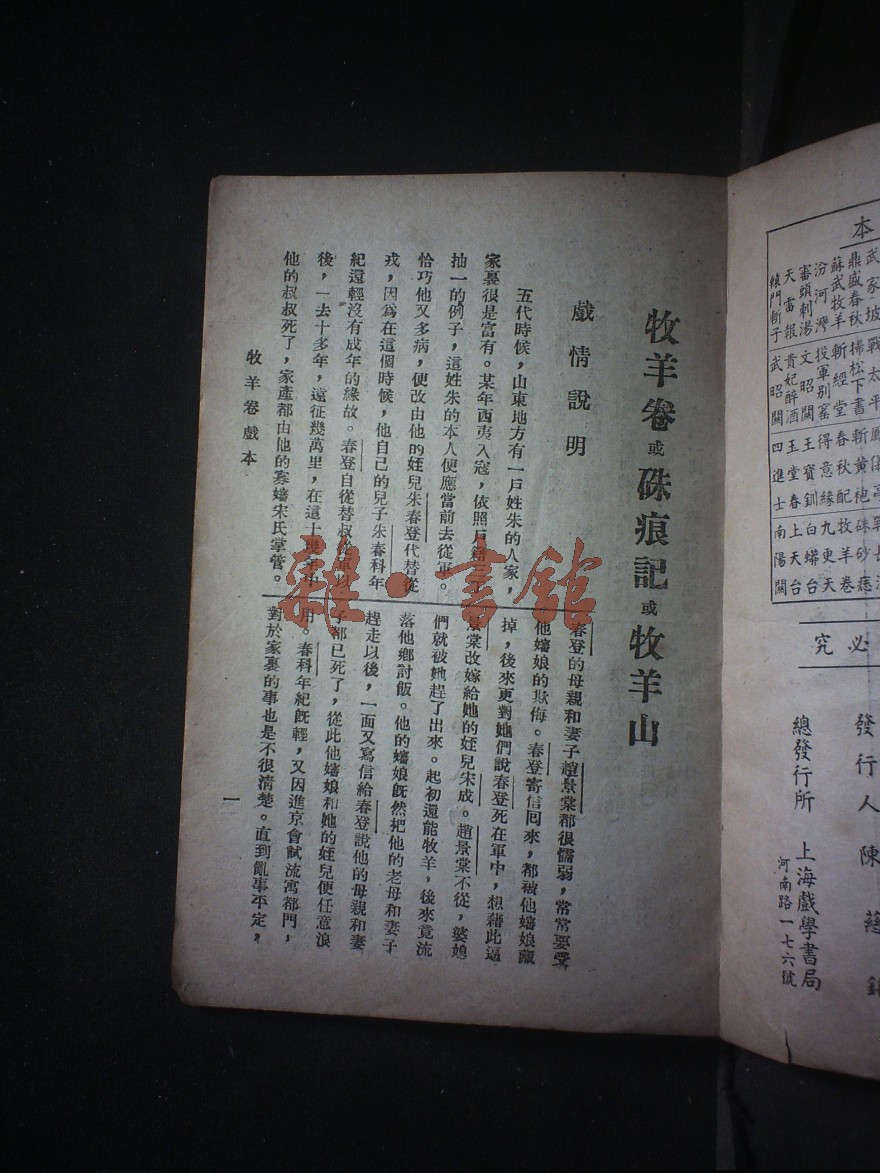 牧羊卷或硃痕記或牧羊山
戲情說明
五代時候，山東地方有一戶姓朱的人家，
家裏很是富有。某年西夷入寇，依照戶籍三
抽一的例子，這姓朱的本人便應當前去從軍。
恰巧他又多病，便改由他的姪兒朱春登代替從
戎，因爲在這個時候，他自己的兒子朱春科年
紀還輕沒有成年的緣故。春登自從替叔從軍以
後，一去十多年，遠征幾萬里，在這十幾年中
他的叔叔死了，家產都由他的寡嬸宋氏掌管。
春登的母親和妻子趙景棠都很懦弱，常常要受
他嬸娘的欺侮。春登寄信回來，都被他嬸娘藏
掉，後來更對她們說春登死在軍中，想藉此逼
景棠改嫁給她的姪兒宋成。趙景棠不從，婆媳
們就被她趕了出來。起初還能牧羊，後來竟流
落他鄉討飯。他的嬸娘既然把他的老母和妻子
趕走以後，一面又寫信給春登說他的母親和妻
子都已死了，從此他嬸娘和她的姪兒便任意浪
用。春科年紀既輕，又因進京會試流寓都門，
對於家裏的事也是不很清楚。直到亂事平定，
牧羊卷戲本
一
雜·書館
本
武家坡
鼎盛春秋
蘇武牧羊
汾河灣
審頭刺湯
天雷報
轅門斬子
戰太平
掃松下書
斬經堂
投軍別窑
文昭關
貴妃醉酒
武昭關
斬黃袍
春秋配
得意緣
王寶釧
玉堂春
四進士
硃砂痣
牧羊卷
九更天
白蟒台
上天台
南陽關
必究
發行人 陳
總發行所 上海戲學書局
河南路一七六號